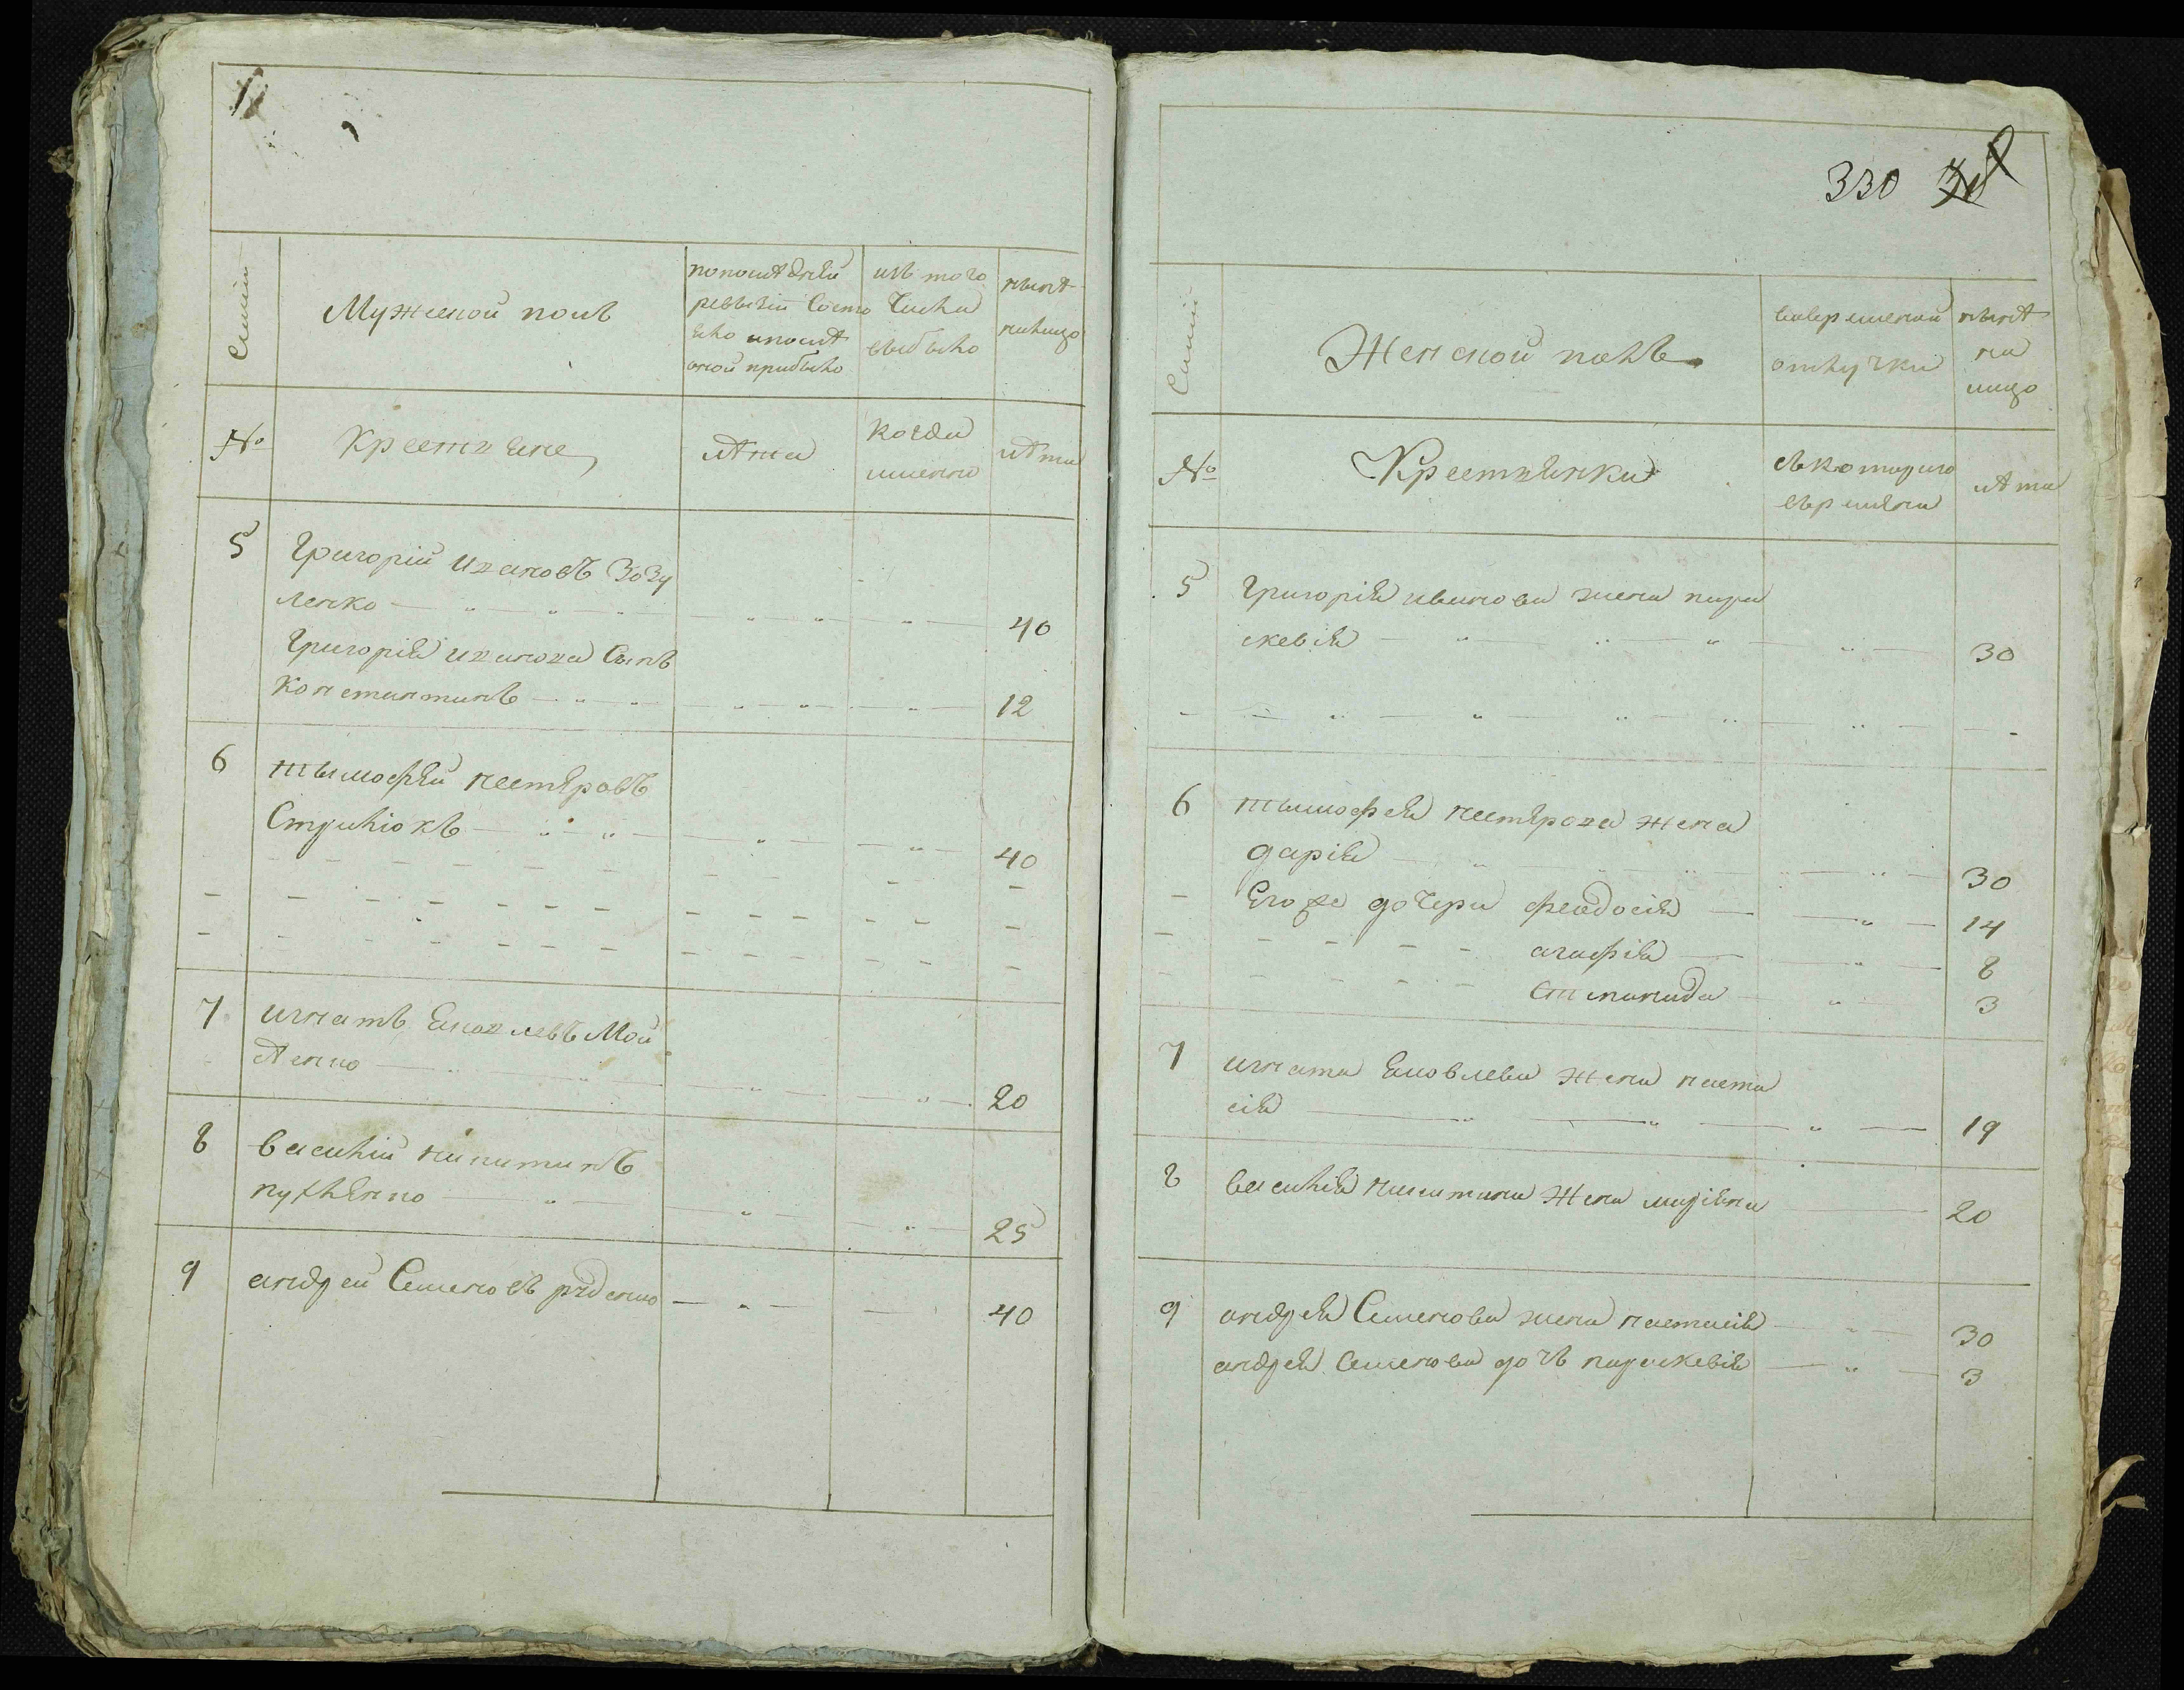 Семьи
Мужеской полъ
попоследней
ревизіи Состо
яло ипосле
оной прибыло
изъ того
Числа
выбыло
ныне
налицо
№
Крестьяне
лета
когда
именно
лета
5
Григорій ивановъ Зозу
ленко
40
Григорія иванова Сынъ
Константинъ
12
6
тымофей нестеровъ
Стрилюкъ
40
7
игнатъ Яковлевъ Мой
20
8
василій никитинъ
25
9
андрей Семеновъ руденко
40
330
Семьи
Женской полъ
вовременной
отлучки
ныне
на
лицо
№
Крестьянки
съкотораго
времяни
лета
5
Григорія иванова жена пара
скевія
30
6
тымофея нестерова жена
дарія
30
Его же дочери феодосія
14
агафія
8
3
7
игната Яковлева жена наста
сія
19
8
василія никитина жена маріяна
20
9
андрея Семенова жена настасія
30
андрея Семенова дочь параскевія
3